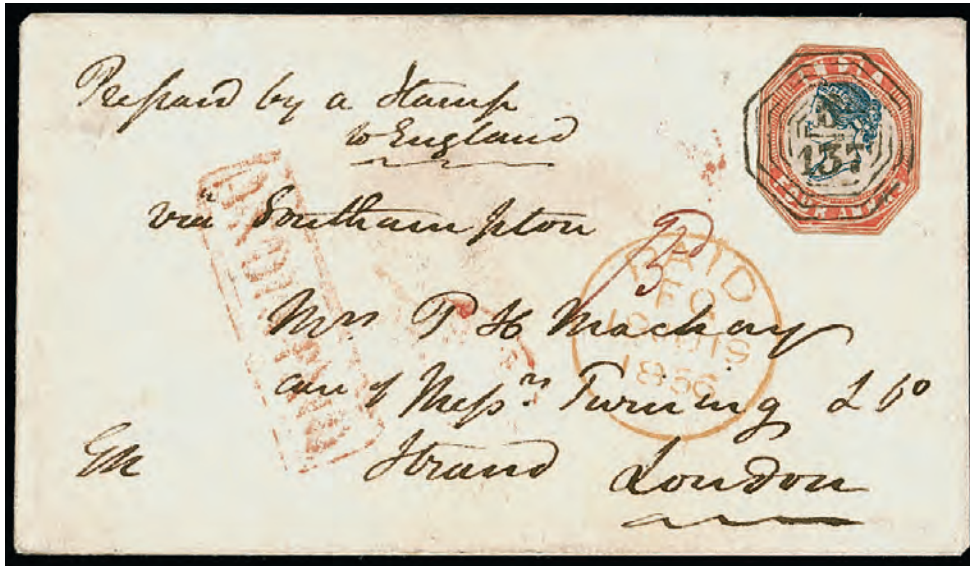 Prepaid by a Stamp
to England
INDIA
B
137
FOUR ANNAS
via Southampton
Pd
PAID
1856
Mrs P H Mackay
care of Messrs Turning & Co
Strand London